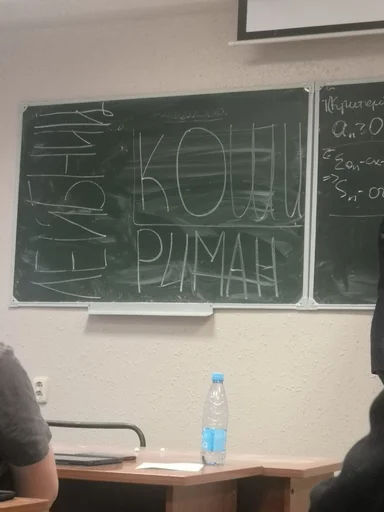 ЛЕЙБНИЦ
КОШИ
РИМАН
(Критери
aₙ ≥ 0
Σaₙ - сх
⇒ Sₙ - о